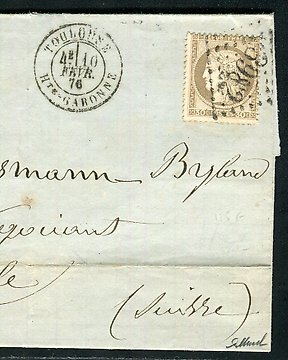 TOULOUSE
4E 10
FÉVR.
76
HTE-GARONNE
3982
30 C 30 C
smann Byland
egociant
le
(Suisse)